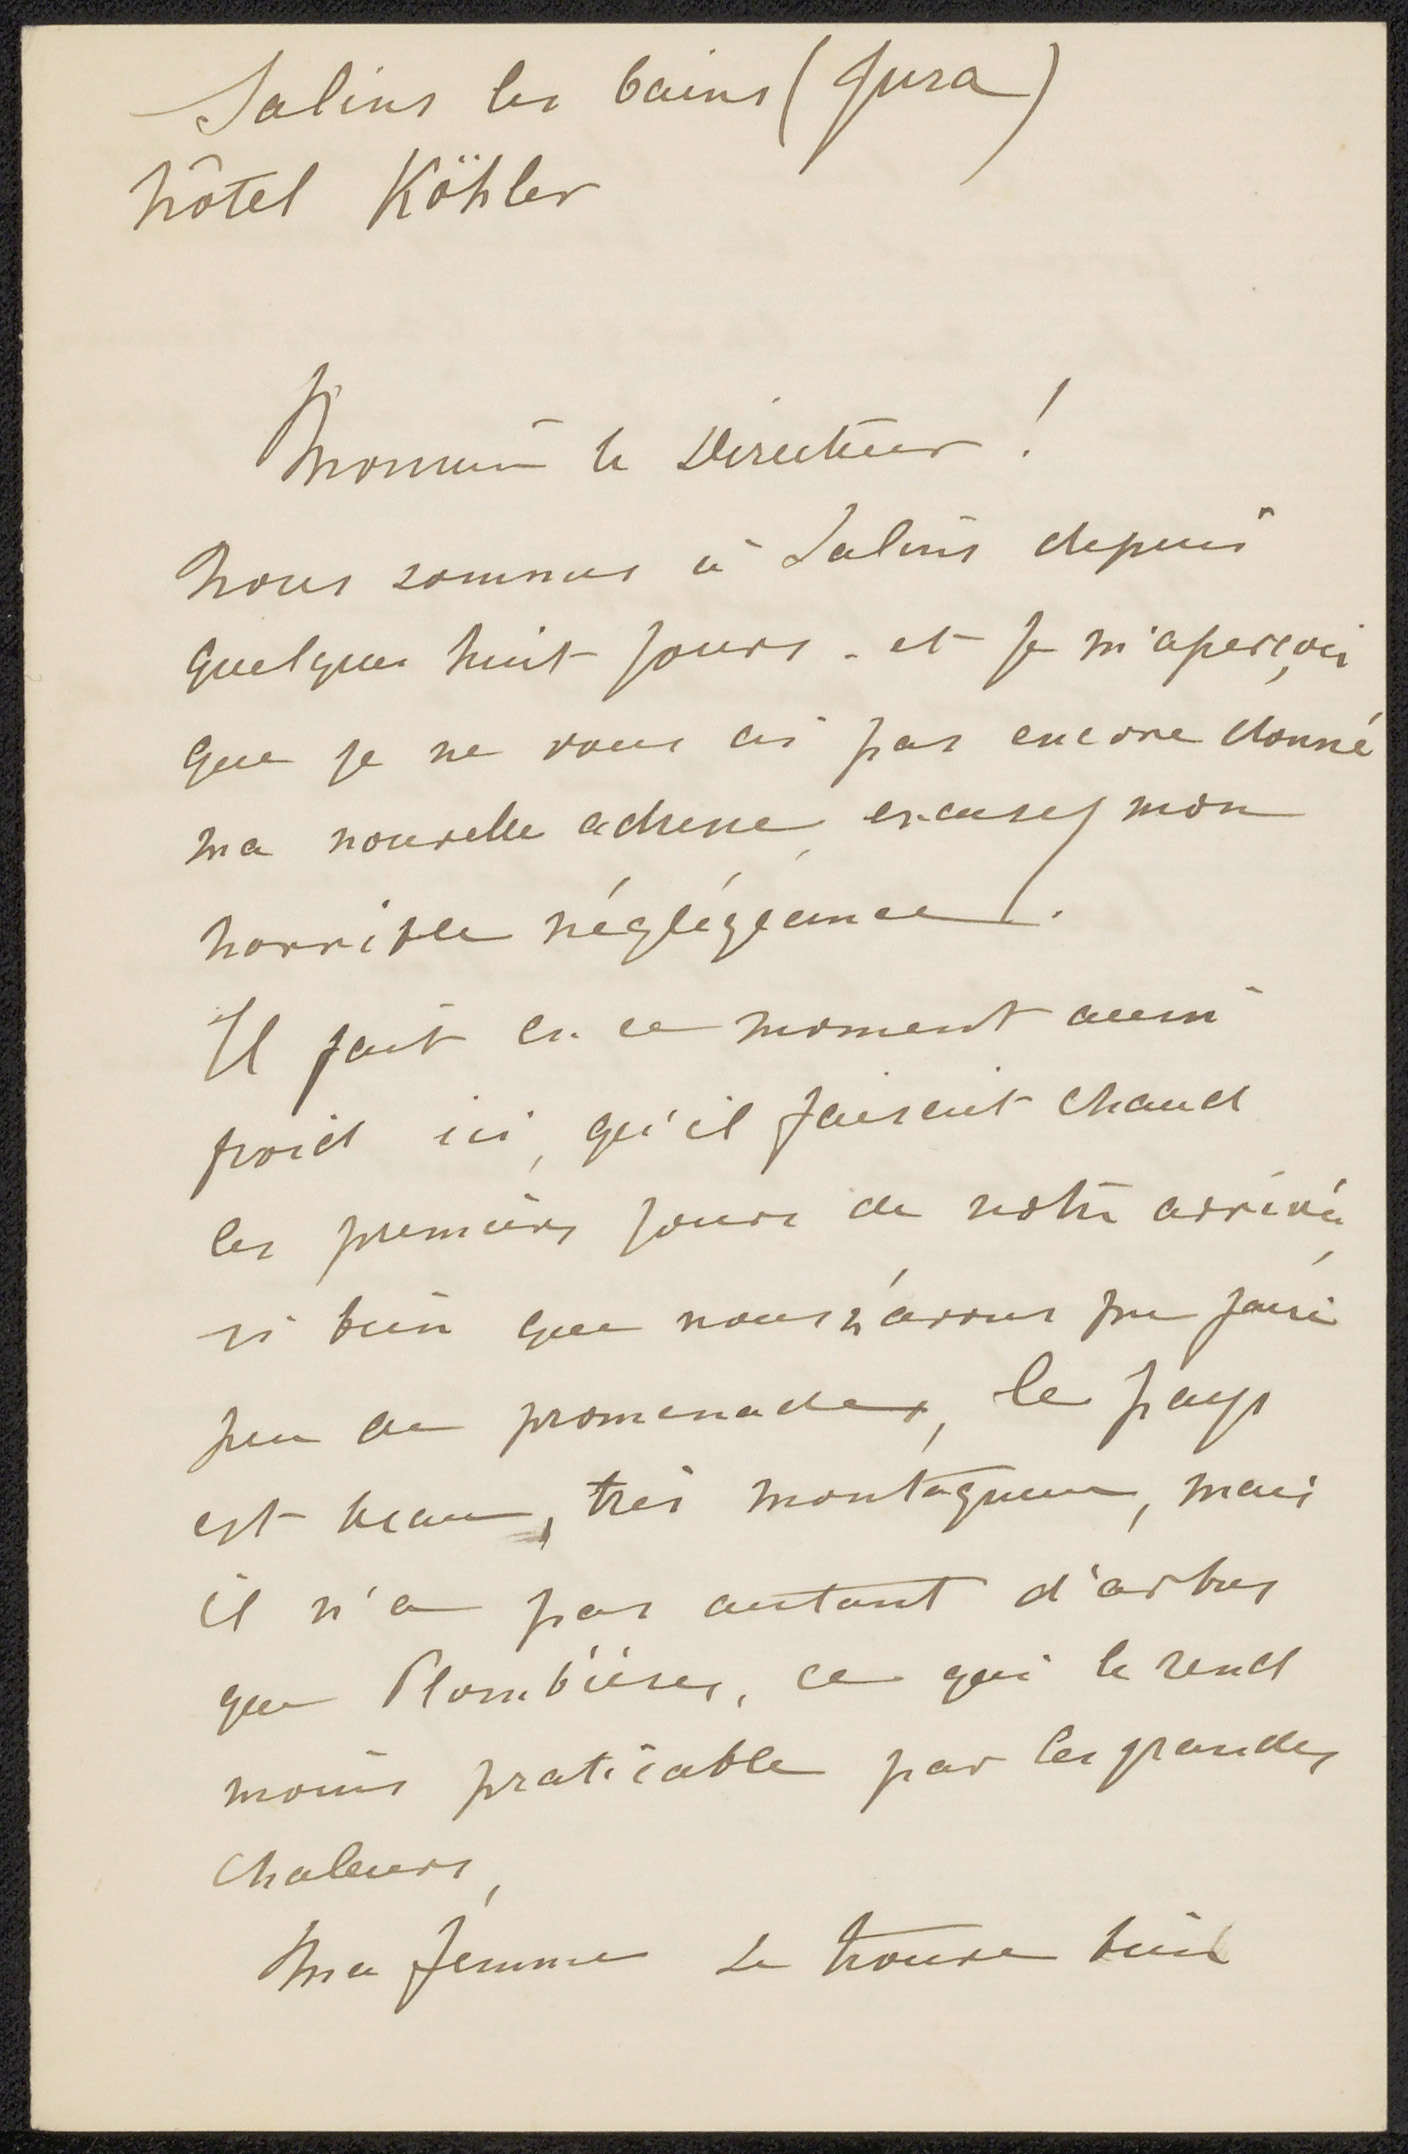 Salins les bains (Jura)
hôtel Köhler
Monsieur le Directeur !
Nous sommes à Salins depuis
quelques huit jours. et je m'aperçois
que je ne vous ai pas encore donné
ma nouvelle adresse, excusez mon
horrible négligéance.
Il fait en ce moment aussi
froid ici, qu'il faisait chaud
les premiers jours de notre arrivée,
si bien que nous n'avons pu faire
peu de promenades, le pays
est beau, très montagneux, mais
il n'a pas autant d'arbres
que Plombières, ce qui le rend
moins praticable par les grandes
chaleurs,
Ma femme se trouve bien